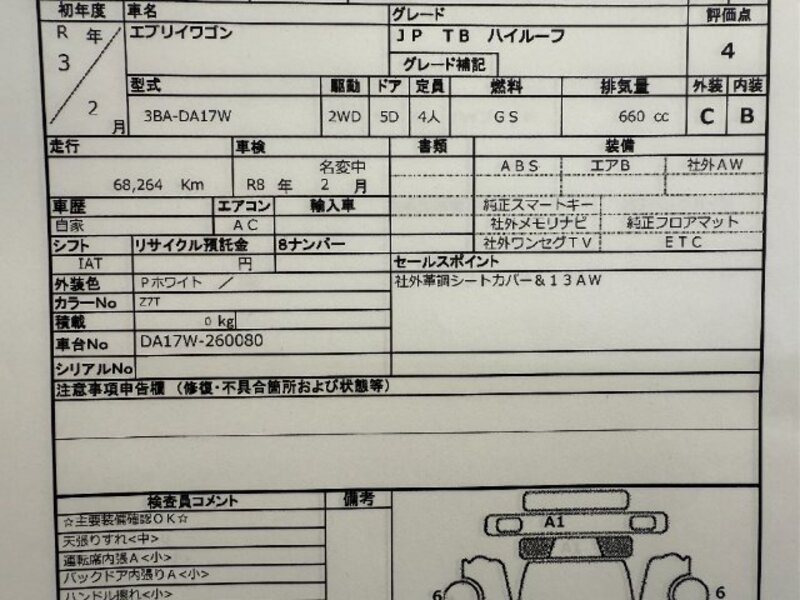 初年度 車名 グレード 評価点
R 年 エブリイワゴン JP TB ハイルーフ 4
3 グレード補記
型式 駆動 ドア 定員 燃料 排気量 外装 内装
2 月 3BA-DA17W 2WD 5D 4人 GS 660 cc C B
走行 車検 書類 装備
名変中 ABS エアB 社外AW
68,264 Km R8 年 2 月
車歴 エアコン 輸入車 純正スマートキー
自家 AC 社外メモリナビ 純正フロアマット
シフト リサイクル預託金 8ナンバー 社外ワンセグTV ETC
IAT 円 セールスポイント
外装色 Pホワイト / 社外革調シートカバー&13AW
カラーNo Z7T
積載 0 kg
車台No DA17W-260080
シリアルNo
注意事項申告欄 (修復・不具合箇所および状態等)
検査員コメント 備考
☆主要装備確認OK☆ A1
天張りすれ<中>
運転席内張A<小>
バックドア内張りA<小>
ハンドル擦れ<小> 6 6